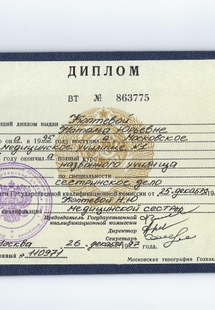 ДИПЛОМ
ВТ № 863775
диплом выдан Коптевой
Наталье Юрьевне
в 19 году поступил а в Московское
медицинское училище №1
году окончил а полный курс
названного училища
по специальности
сестринское дело
Государственной квалификационной комиссии от 25 декабря
Коптевой Н.Ю
квалификация медицинской сестры
Председатель Государственной
квалификационной комиссии
Директор
Секретарь
Москва 26 декабря 97
110971
Московская типография Гознака